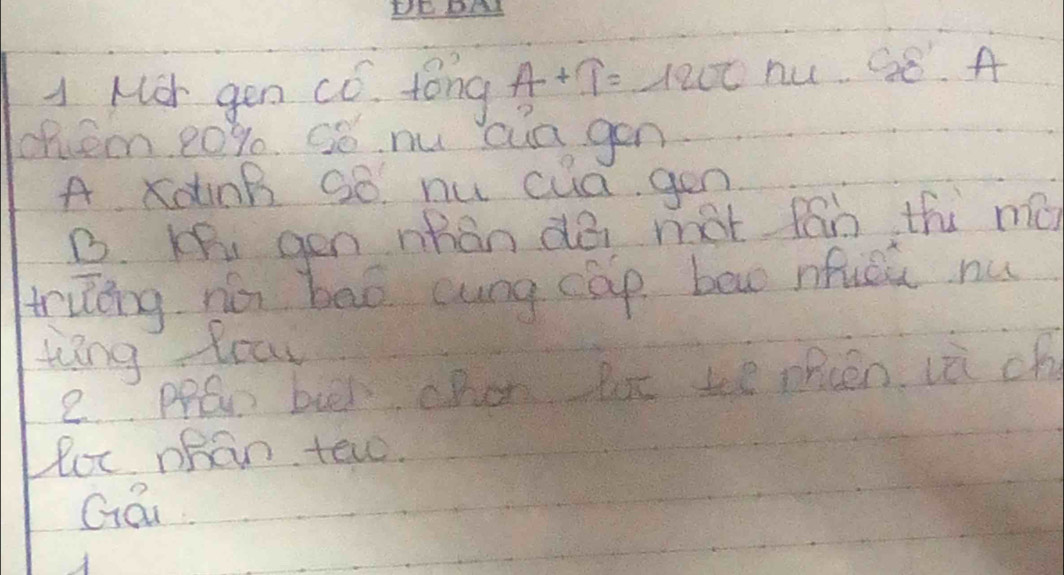 ĐỀ BÀI
1 Một gen có tổng A+T= 1200 nu. Số A
chiếm 20% số nu của gen
A Xđịnh số nu của gen
B. Khi gen nhân đôi một lần thì môi
trường nội bào cung cấp bao nhiêu nu
từng loại
2 Phân biệt chọn lọc tự nhiên và ch
lọc nhân tạo.
Giải
1